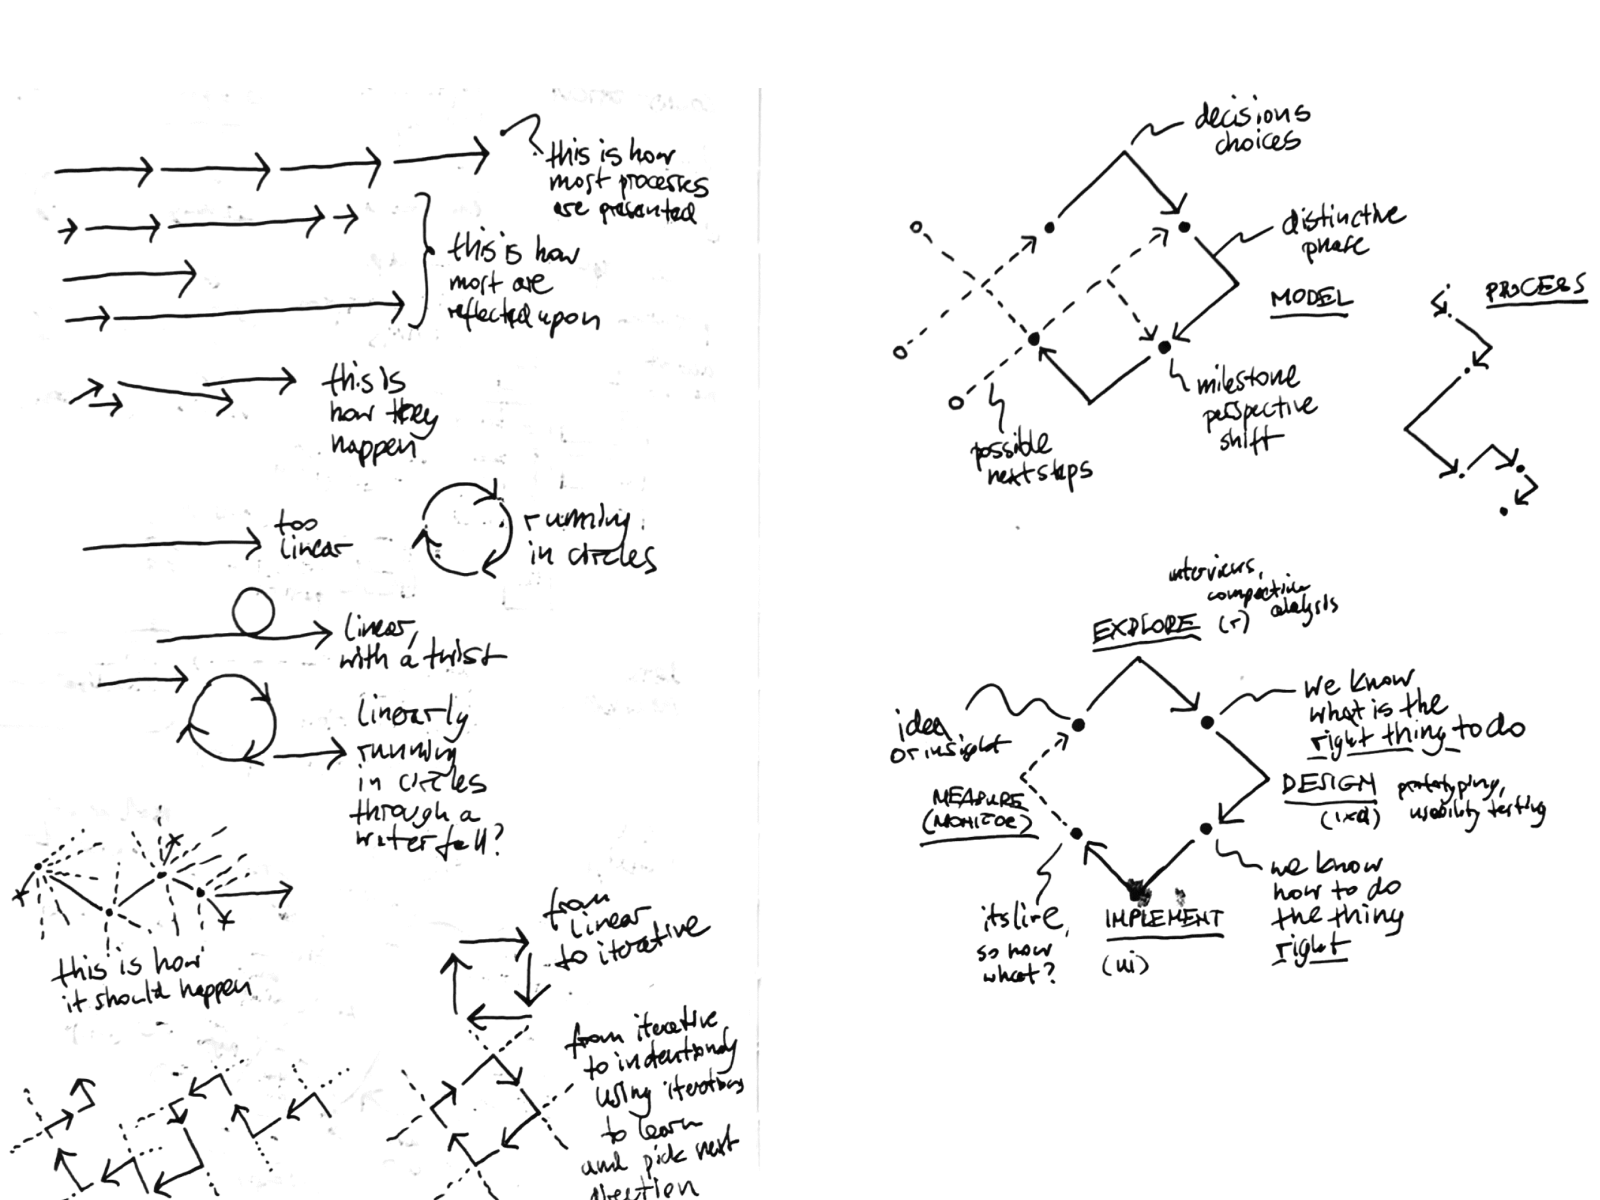 this is how
most processes
are presented
this is how
most are
reflected upon
this is
how they
happen
too
linear
running
in circles
linear,
with a twist
linearly
running
in circles
through a
waterfall?
this is how
it should happen
from
linear
to iterative
from iterative
to intentionally
using iterations
to learn
and pick next
direction
decisions
choices
distinctive
phase
MODEL
PROCESS
milestone
perspective
shift
possible
next steps
interviews,
competitive
analysis
EXPLORE (r)
idea
or insight
we know
what is the
right thing to do
MEASURE
(MONITOR)
DESIGN
(ixd)
prototyping,
usability testing
we know
how to do
the thing
right
its live,
so now
what?
IMPLEMENT
(ui)